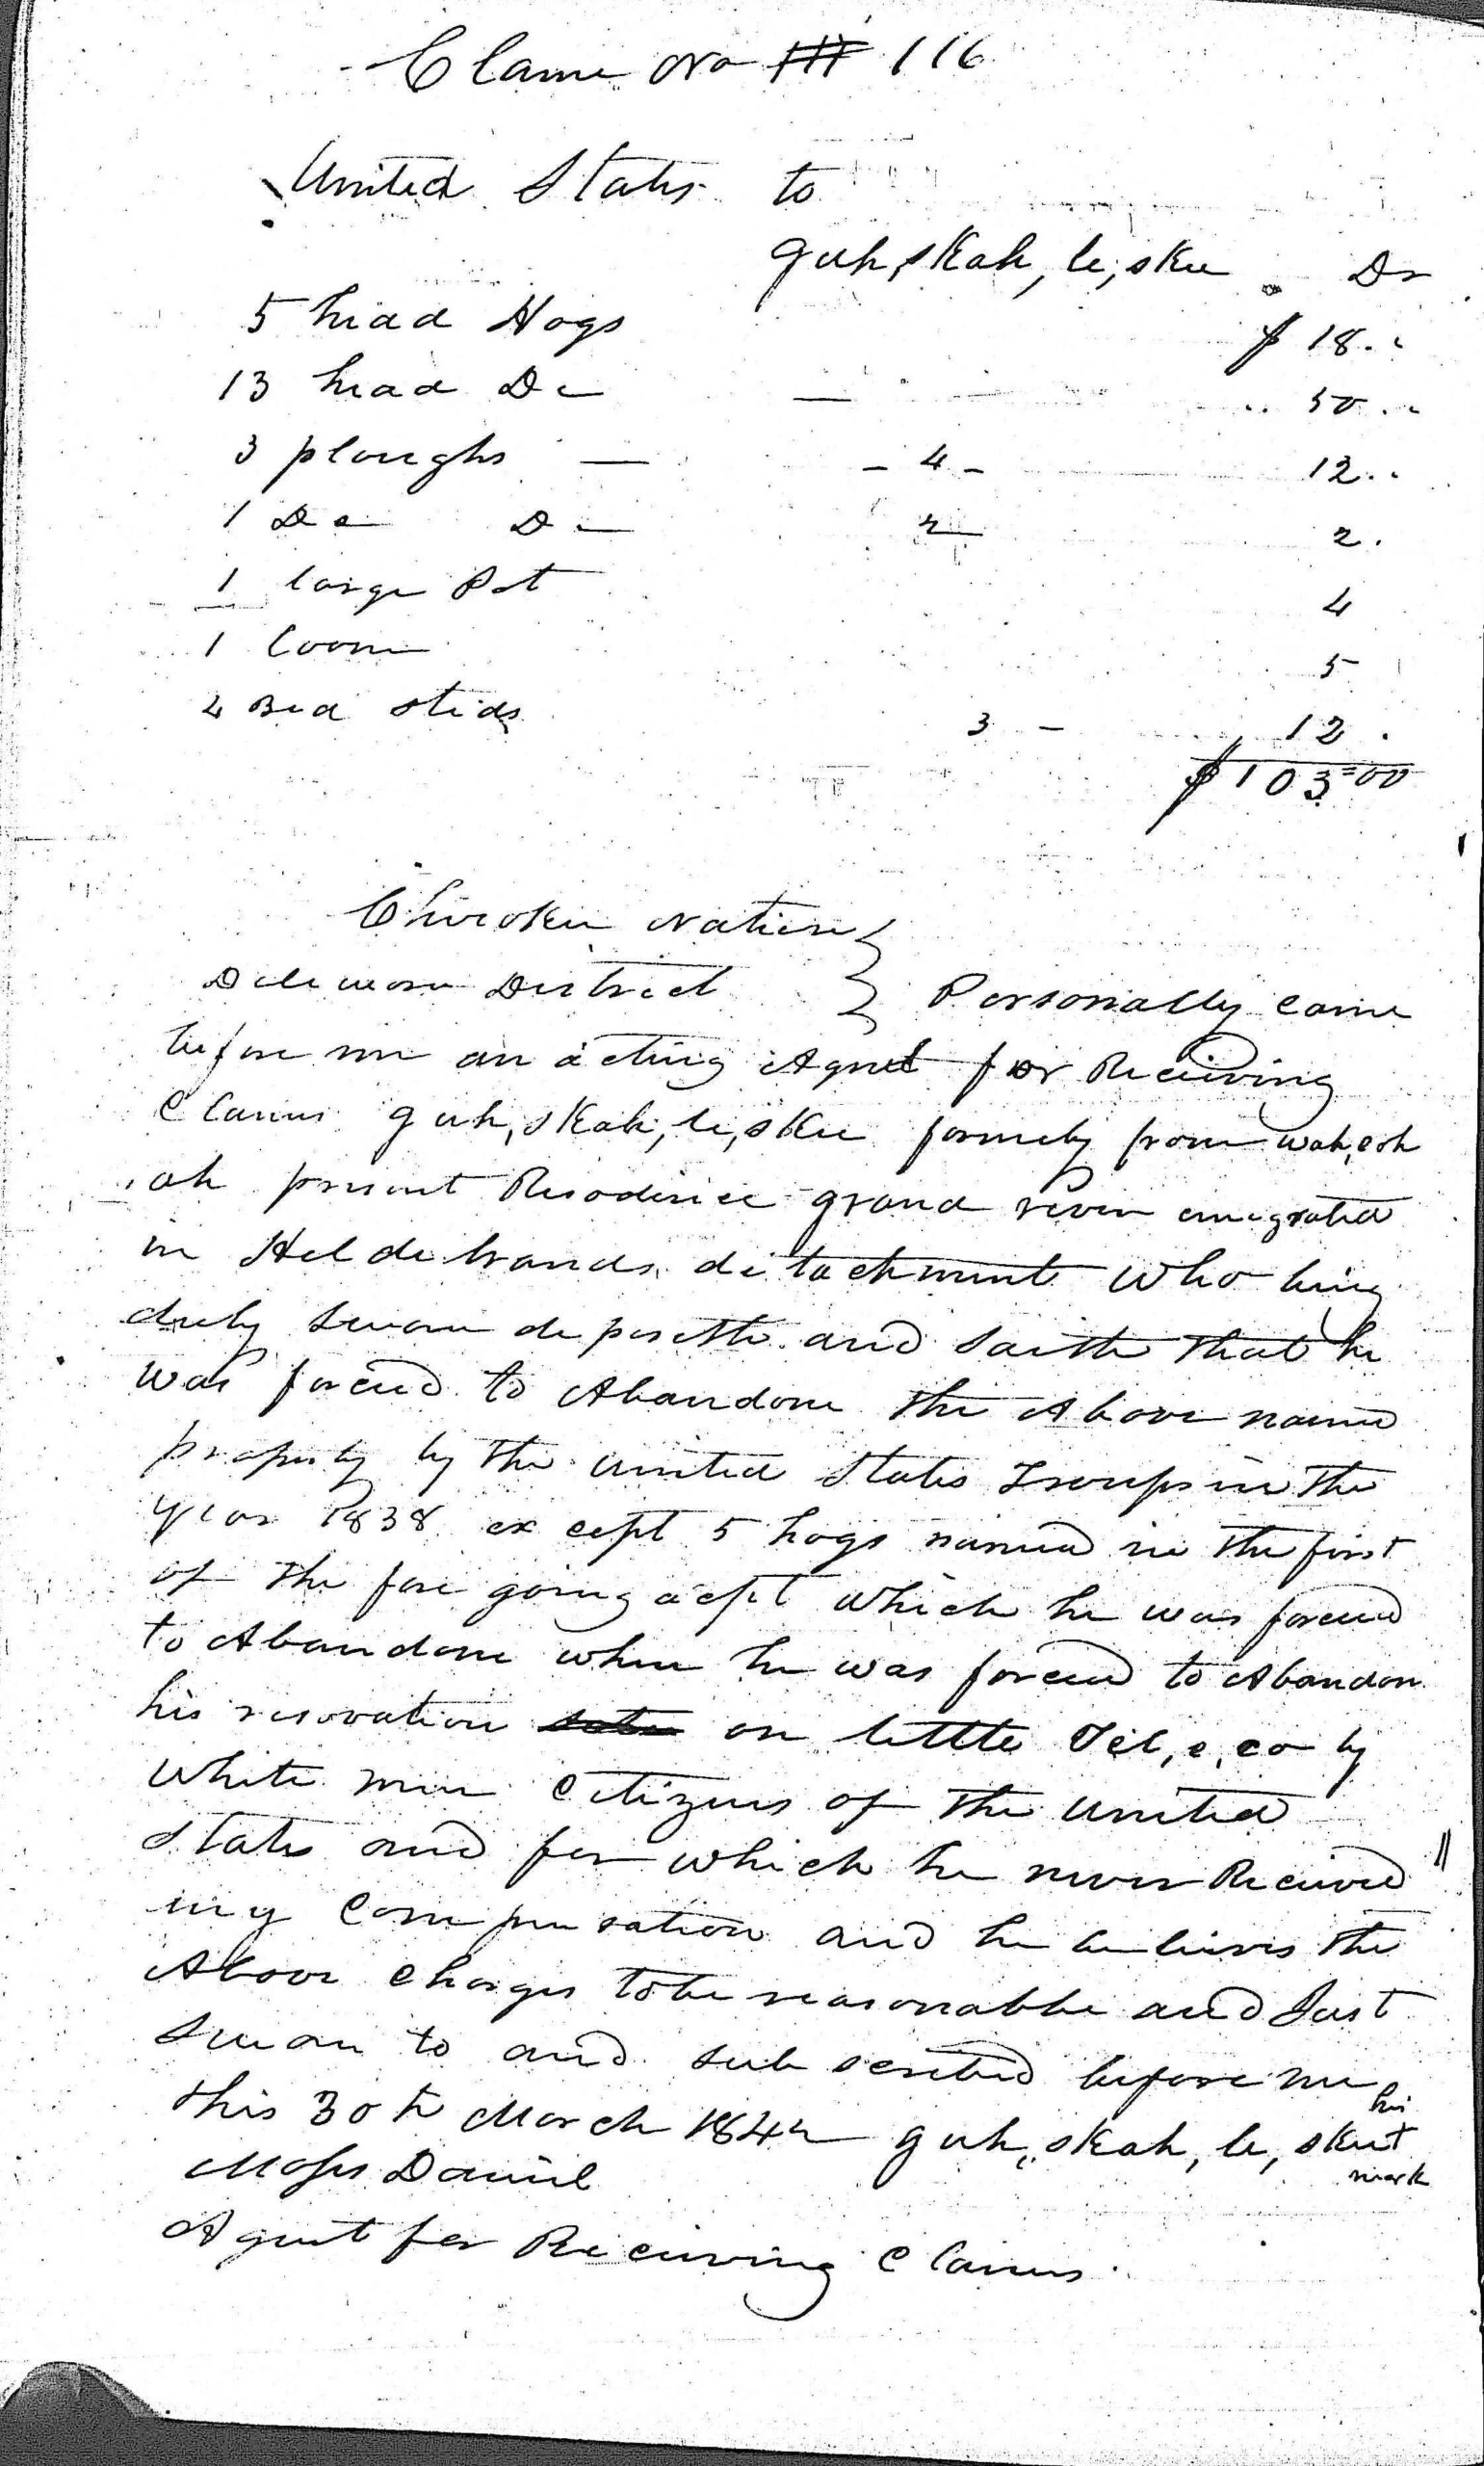 Claim No 116
United States to
guh, skah, le, skee Dr
5 head Hogs $ 18..
13 head Do — .. 50..
3 ploughs — - 4 - 12..
1 Do Do — 2 2.
1 large Pot 4
1 Loom 5
4 Bed steds 3 - 12.
$103=00
Cherokee Nation
Deleware District } Personally came
before me an acting Agent for Receiving
Claims guh, skah, le, skee formely from wah, eoh
ah present Resodence grand river emigrated
in Heldebrands detachment who being
duly sworn deposeth and saith that he
was forced to Abandone the Above named
property by the united States Troups in the
year 1838 except 5 hogs named in the first
of the fore going acpt which he was forced
to Abandone when he was forced to Abandon
his resorvation on little Tel, e, co by
white men Citizens of the United
States and for which he never Received
iny Compensation and he beleives the
Above charges to be reasonable and Just
Sworn to and subscribed before me
his
this 30th March 1842 guh, skah, le, skee +
mark
Moses Daniel
Agent for Receiving Claims.